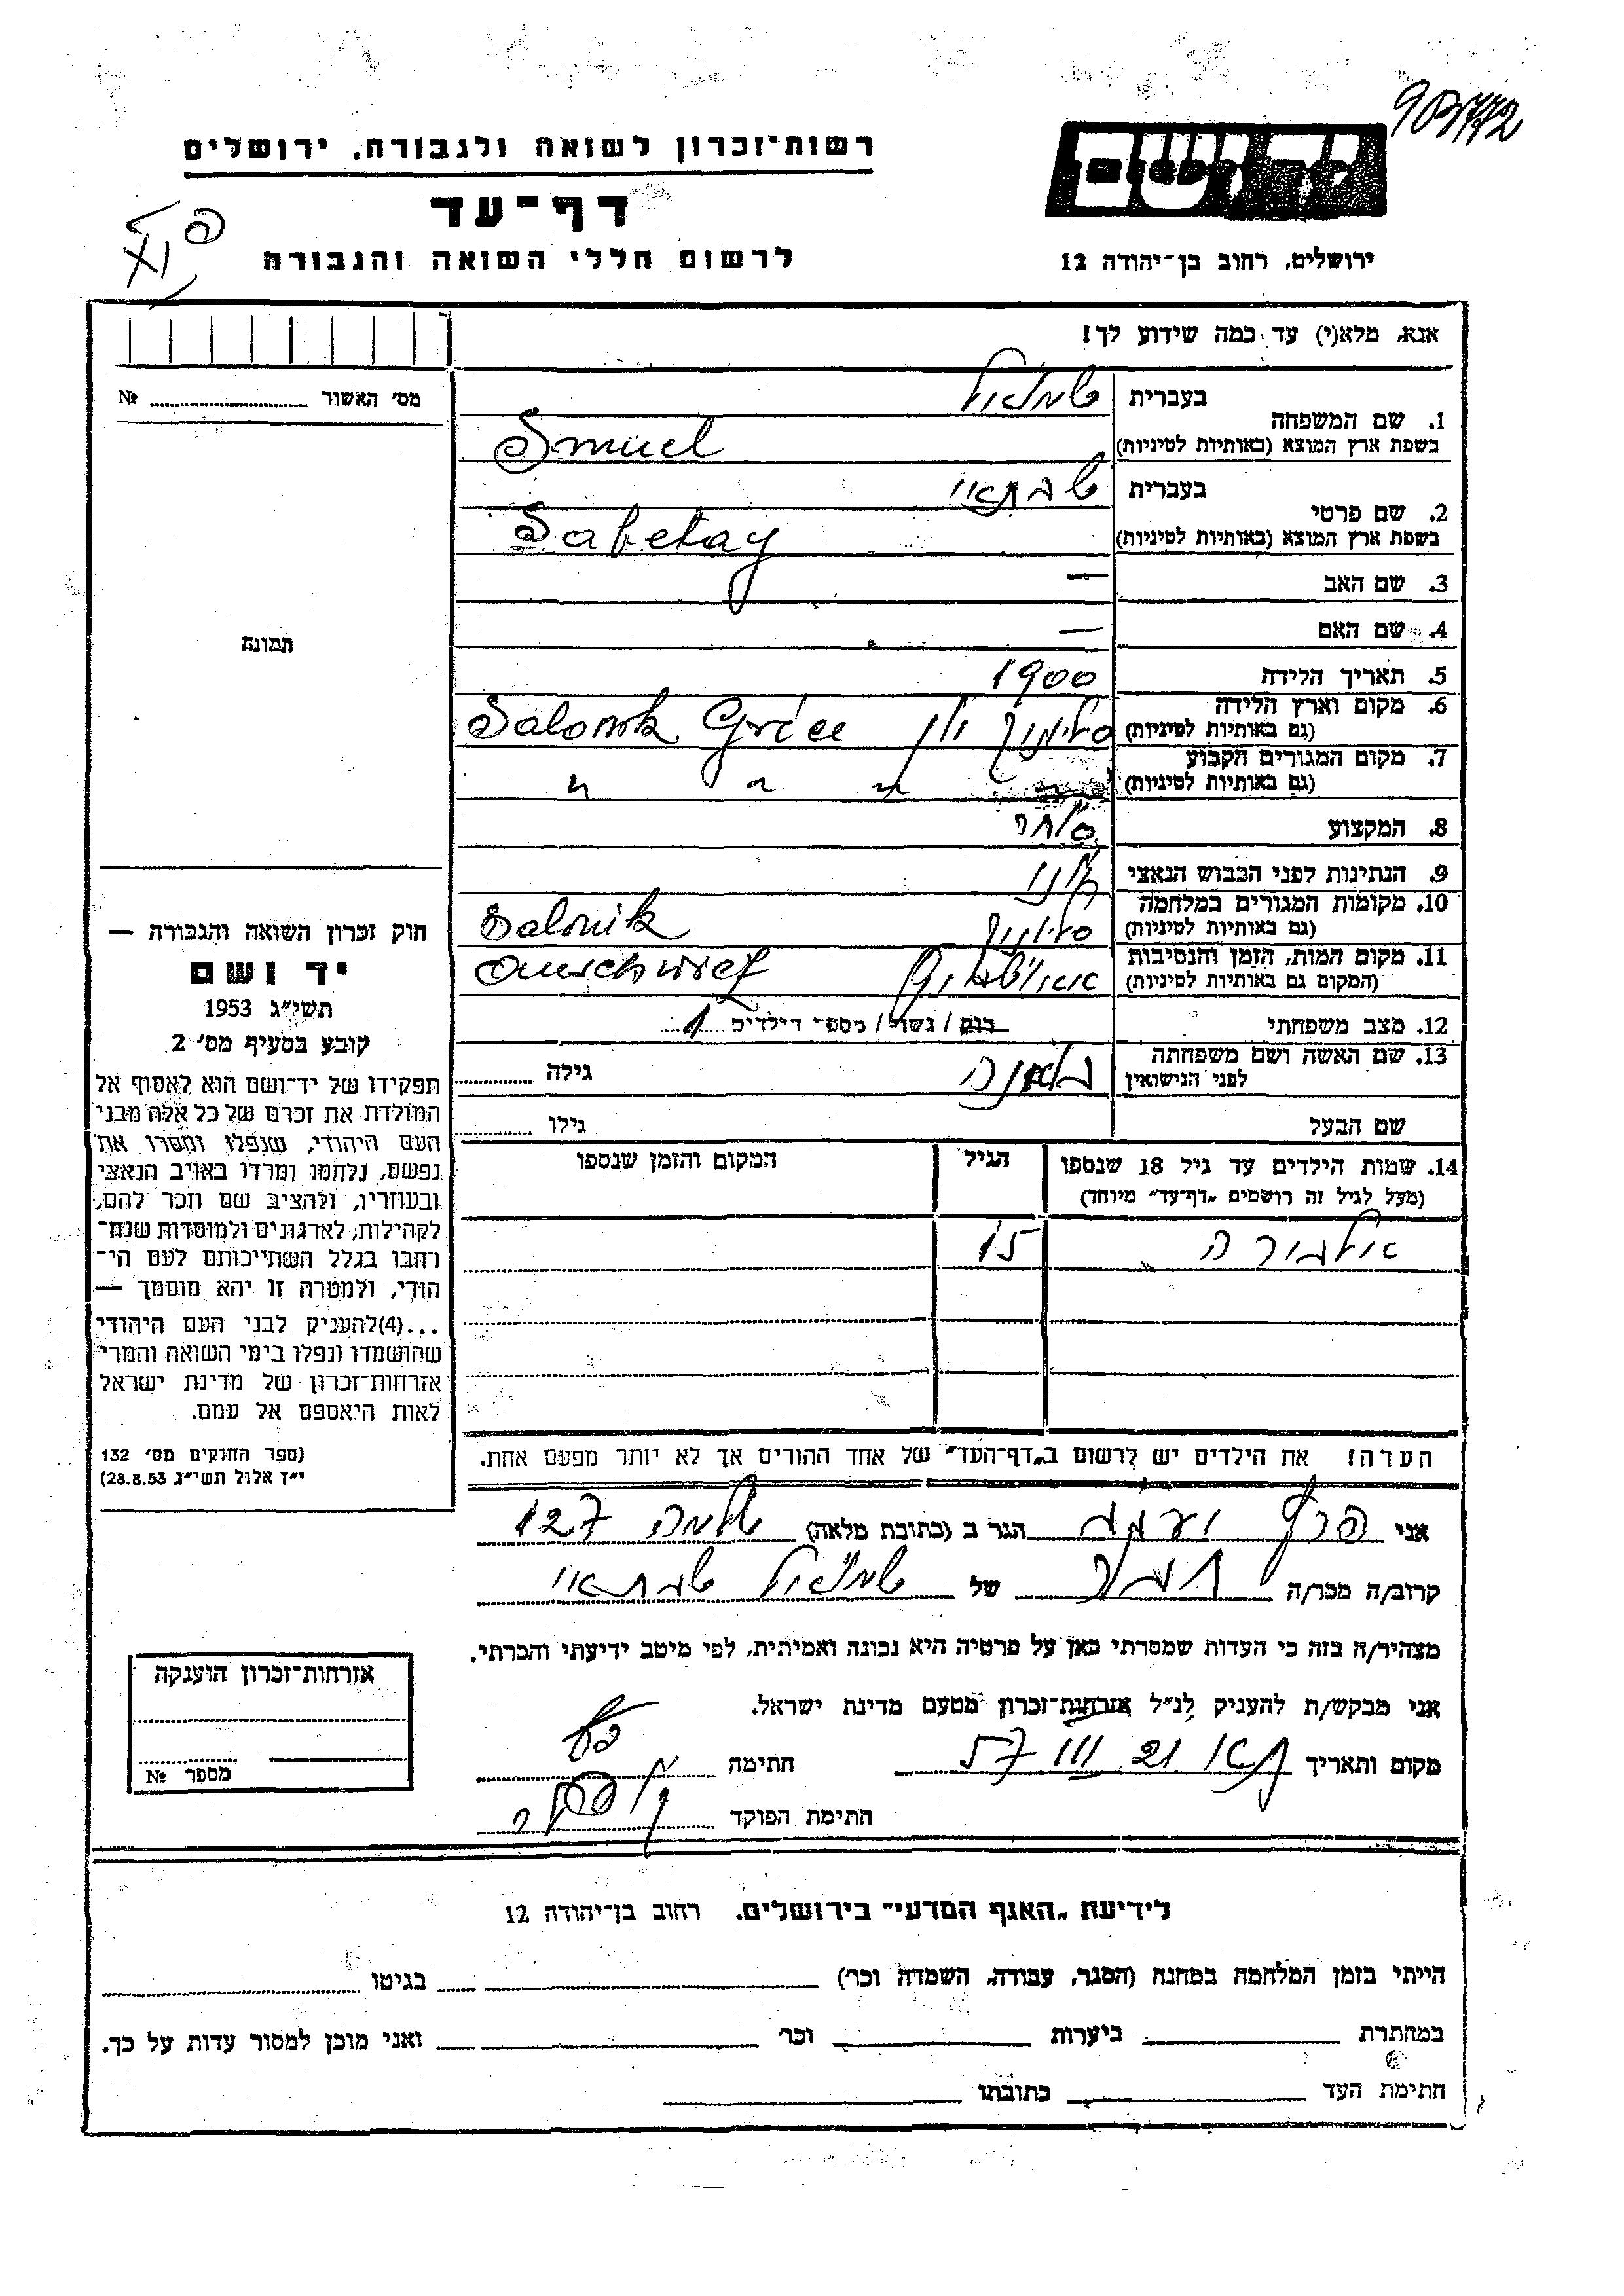 903772
רשות־זכרון לשואה ולגבורה, ירושלים
יד ושם
דף־עד
לרשום חללי השואה והגבורה
ירושלים, רחוב בן־יהודה 12
אנא, מלא(י) עד כמה שידוע לך!
מס׳ האשור № 
1. שם המשפחה
בעברית שמואל
בשפת ארץ המוצא (באותיות לטיניות) Smuel
2. שם פרטי
בעברית שבתאי
בשפת ארץ המוצא (באותיות לטיניות) Sabetay
3. שם האב —
4. שם האם —
5. תאריך הלידה 1900
6. מקום וארץ הלידה
(גם באותיות לטיניות) סלוניק יון Salonik Gréce
7. מקום המגורים הקבוע
(גם באותיות לטיניות) " " " "
8. המקצוע סוחר
9. הנתינות לפני הכבוש הנאצי יוני
10. מקומות המגורים במלחמה
(גם באותיות לטיניות) סלוניק Salonik
11. מקום המות, הזמן והנסיבות
(המקום גם באותיות לטיניות) אאושוויץ Auschwitz
12. מצב משפחתי רווק / נשוי / מספר הילדים 1
13. שם האשה ושם משפחתה
לפני הנישואין גילה
שם הבעל גילו
14. שמות הילדים עד גיל 18 שנספו
(מעל לגיל זה רושמים „דף־עד״ מיוחד)
הגיל
המקום והזמן שנספו
אלבירה 15
הערה! את הילדים יש לרשום ב„דף־העד״ של אחד ההורים אך לא יותר מפעם אחת.
תמונה
חוק זכרון השואה והגבורה —
יד ושם
תשי״ג 1953
קובע בסעיף מס׳ 2
תפקידו של יד־ושם הוא לאסוף אל
המולדת את זכרם של כל אלה מבני
העם היהודי, שנפלו ומסרו את
נפשם, נלחמו ומרדו באויב הנאצי
ובעוזריו, ולהציב שם וזכר להם,
לקהילות, לארגונים ולמוסדות שנח־
רבו בגלל השתייכותם לעם הי־
הודי, ולמטרה זו יהא מוסמך —
...(4)להעניק לבני העם היהודי
שהושמדו ונפלו בימי השואה והמרי
אזרחות־זכרון של מדינת ישראל
לאות היאספם אל עמם.
(ספר החוקים מס׳ 132
י״ז אלול תשי״ג 28.8.53)
אני הגר ב (כתובת מלאה) שלמה 127
קרוב/ה מכר/ה חבר של שמואל שבתאי
מצהיר/ה בזה כי העדות שמסרתי כאן על פרטיה היא נכונה ואמיתית, לפי מיטב ידיעתי והכרתי.
אני מבקש/ת להעניק לנ״ל אזרחות־זכרון מטעם מדינת ישראל.
מקום ותאריך ת״א 21 III 57 חתימה
חתימת הפוקד
אזרחות־זכרון הוענקה
מספר №
לידיעת „האגף המדעי״ בירושלים, רחוב בן־יהודה 12
הייתי בזמן המלחמה במחנה (הסגר, עבודה, השמדה וכר׳) בגיטו
במחתרת ביערות וכר׳ ואני מוכן למסור עדות על כך.
חתימת העד כתובתו